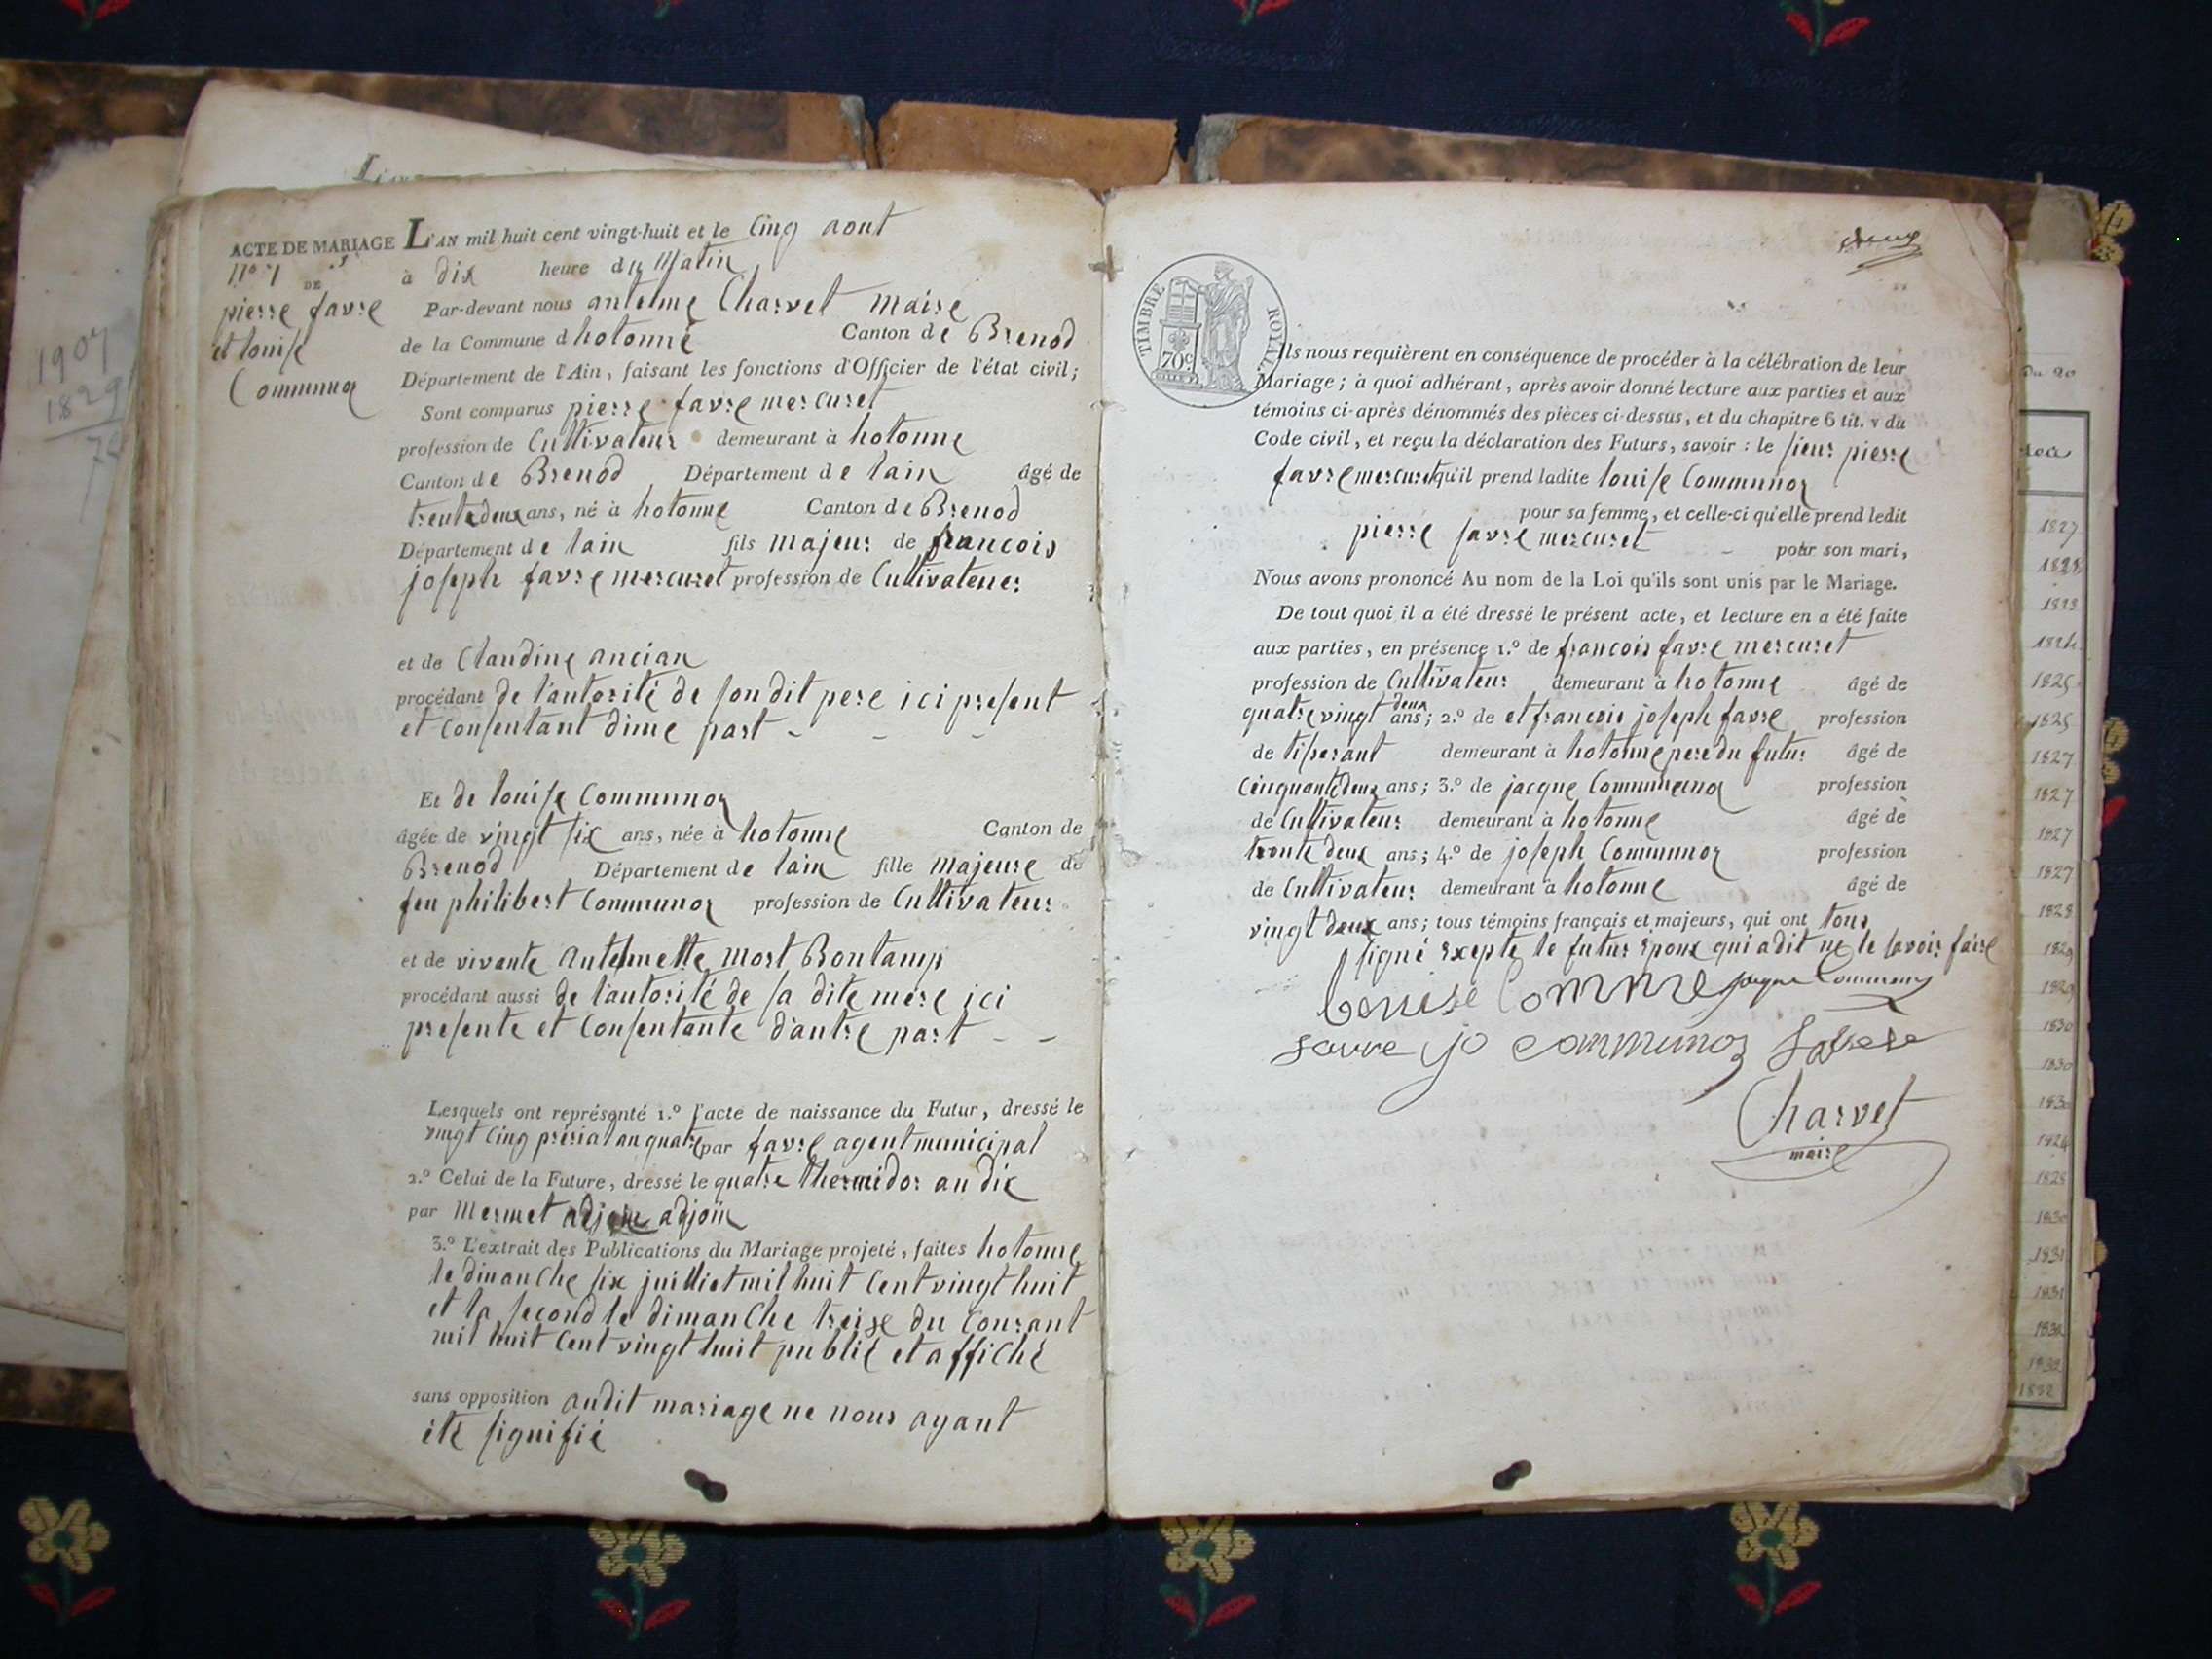 1907
1829
ACTE DE MARIAGE
N° 7
DE
pierre favre
et louise
Communoz
L'AN mil huit cent vingt-huit et le Cinq aout
à dix heure du Matin
Par-devant nous antelme Charvet maire
de la Commune d hotonne Canton de Brenod
Département de l'Ain, faisant les fonctions d'Officier de l'état civil;
Sont comparus pierre favre mercuret
profession de Cultivateur demeurant à hotonne
Canton de Brenod Département de lain âgé de
trente deux ans, né à hotonne Canton de Brenod
Département de lain fils majeur de francois
joseph favre mercuret profession de Cultivateur
et de Claudine ancian
procédant de l'autorité de son dit pere ici present
et Consentant dune part
Et de louise Communoz
âgée de vingt six ans, née à hotonne Canton de
Brenod Département de lain fille majeure de
feu philibert Communoz profession de Cultivateur
et de vivante antelmette mort Bontamp
procédant aussi de l'autorité de sa dite mère ici
presente et Consentante d'autre part
Lesquels ont représenté 1.° l'acte de naissance du Futur, dressé le
vingt Cinq prerial an quatre par favre agent municipal
2.° Celui de la Future, dressé le quatre thermidor an dix
par Mermet adjoin
3.° L'extrait des Publications du Mariage projeté, faites hotonne
le dimanche six juilliet mil huit Cent vingt huit
et la second le dimanche treize du Courant
mil huit Cent vingt huit publié et affiché
sans opposition audit mariage ne nous ayant
été signifié
TIMBRE ROYAL
70c
Ils nous requièrent en conséquence de procéder à la célébration de leur
Mariage; à quoi adhérant, après avoir donné lecture aux parties et aux
témoins ci-après dénommés des pièces ci-dessus, et du chapitre 6 tit. v du
Code civil, et reçu la déclaration des Futurs, savoir: le sieur pierre
favre mercuret qu'il prend ladite louise Communoz
pour sa femme, et celle-ci qu'elle prend ledit
pierre favre mercuret pour son mari,
Nous avons prononcé Au nom de la Loi qu'ils sont unis par le Mariage.
De tout quoi il a été dressé le présent acte, et lecture en a été faite
aux parties, en présence 1.° de francois favre mercuret
profession de Cultivateur demeurant à hotonne âgé de
quatre vingt deux ans; 2.° de et francois joseph favre profession
de tiserant demeurant à hotonne pere du futur âgé de
Cinquante deux ans; 3.° de jacque Communoz profession
de Cultivateur demeurant à hotonne âgé de
trente deux ans; 4.° de joseph Communoz profession
de Cultivateur demeurant à hotonne âgé de
vingt deux ans; tous témoins français et majeurs, qui ont tous
signé Excepte le futur Epoux qui a dit ne le savoir faire
jo communoz
Charvet
maire
du 20
1827
1825
1827
1827
1827
1827
1828
1829
1829
1830
1830
1830
1824
1828
1830
1831
1831
1832
1832
1832